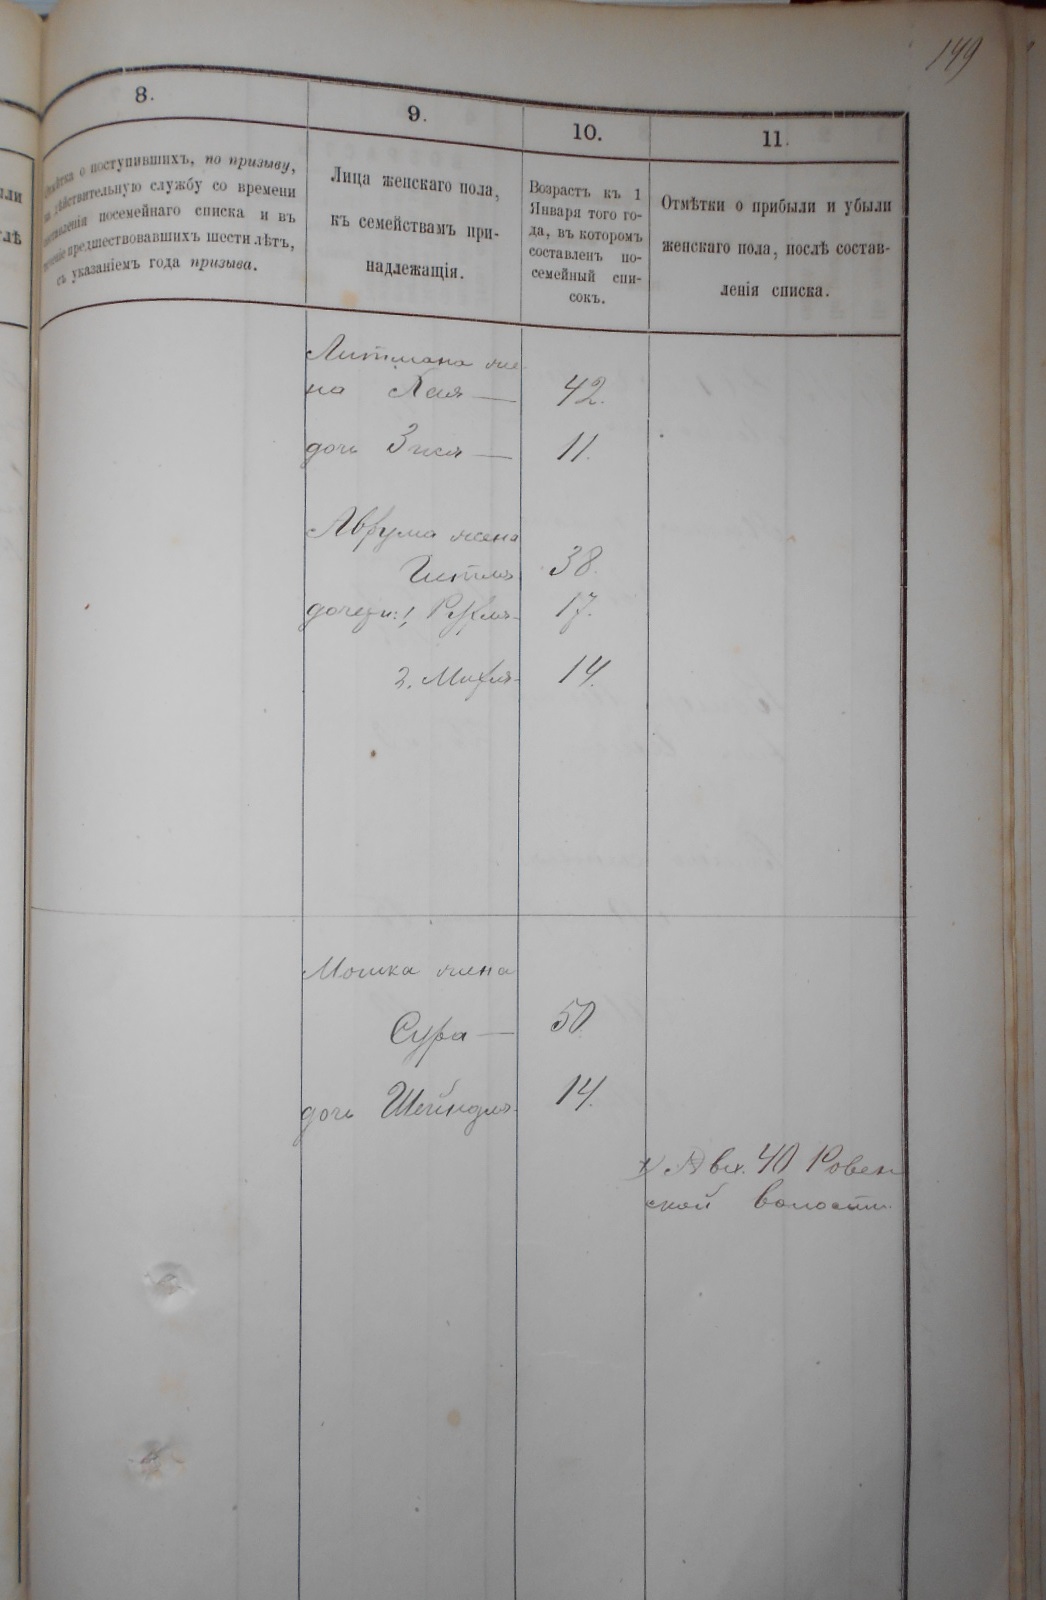 149
8.
9.
10.
11.
о поступившихъ, по призыву,
дѣйствительную службу со времени
посемейнаго списка и въ
предшествовавшихъ шести лѣтъ,
съ указаніемъ года призыва.
Лица женскаго пола,
къ семействамъ при-
надлежащія.
Возрастъ къ 1
Января того го-
да, въ которомъ
составленъ по-
семейный спи-
сокъ.
Отмѣтки о прибыли и убыли
женскаго пола, послѣ состав-
ленія списка.
Литмана же
на Хая — 42.
дочь Зися — 11.
Аврума жена
Гитля 38.
дочери: 1, Рухля 17.
2. Михля 14.
Мошка жена
Сура — 50
дочь Шейндля 14.
40 Ровен
ской волости.